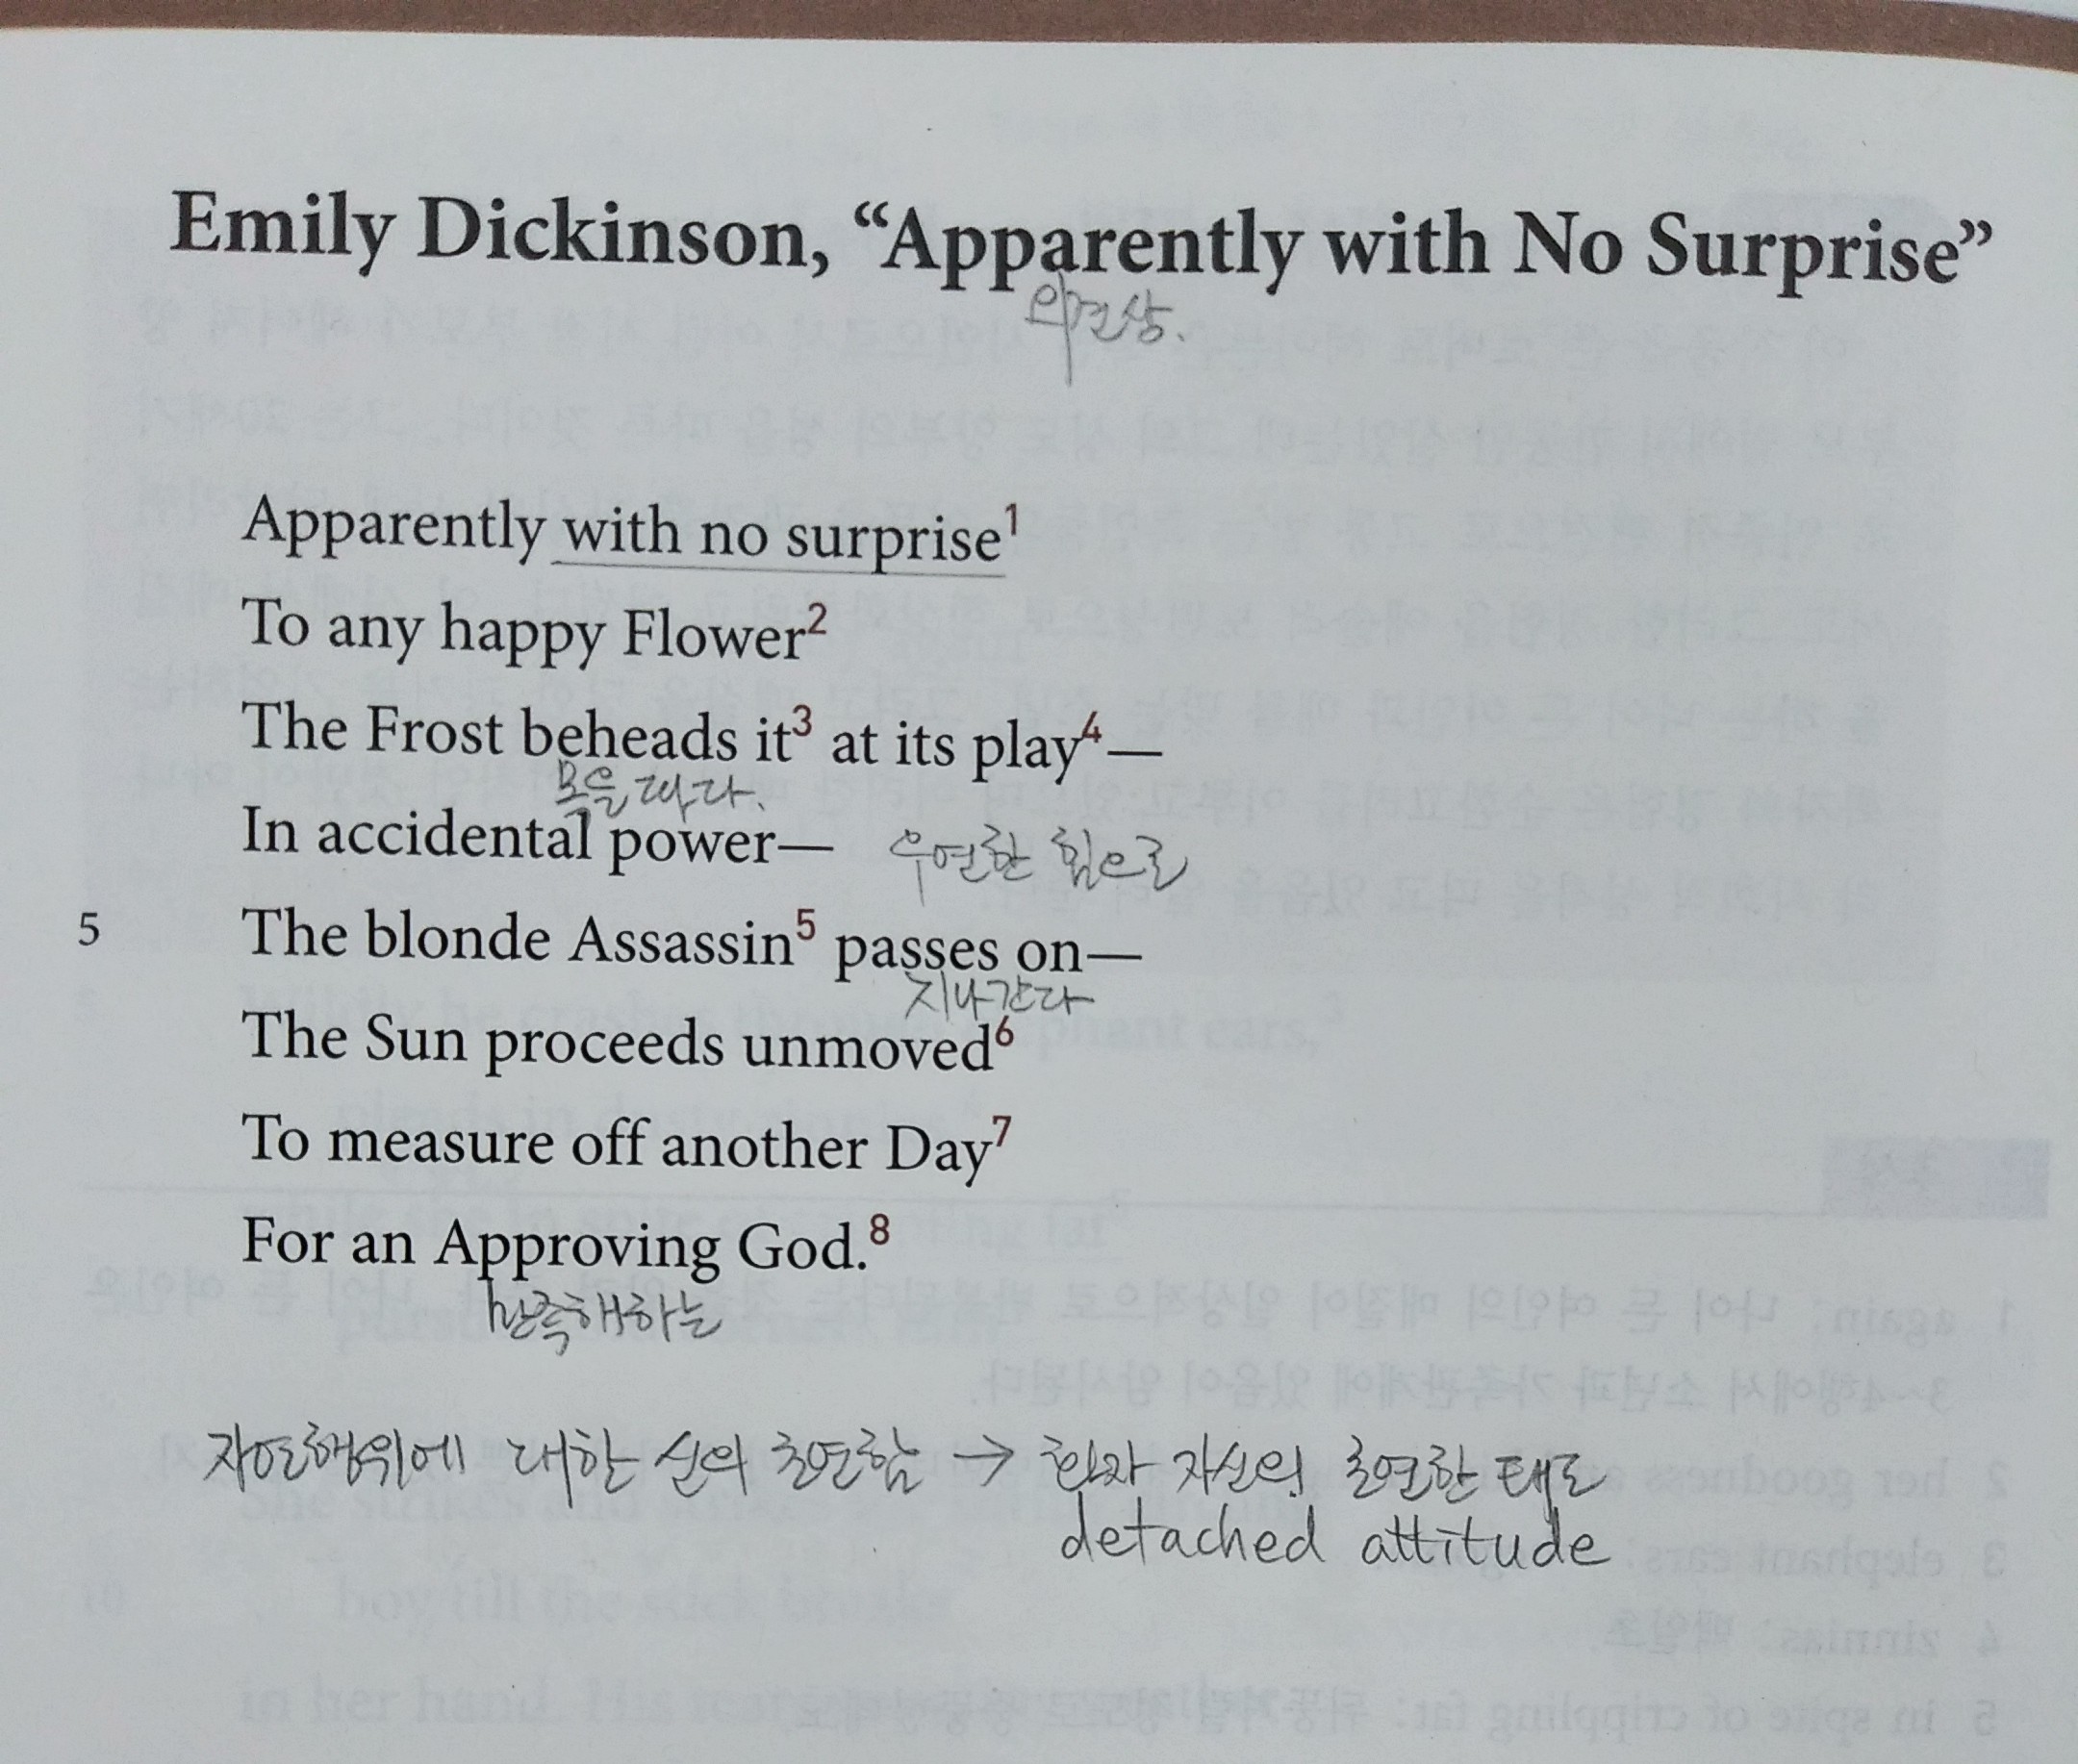 Emily Dickinson, “Apparently with No Surprise”
외견상.
Apparently with no surprise1
To any happy Flower2
The Frost beheads it3 at its play4—
목을 따다.
In accidental power— 우연한 힘으로
5 The blonde Assassin5 passes on—
지나간다
The Sun proceeds unmoved6
To measure off another Day7
For an Approving God.8
만족해하는
자연행위에 대한 신의 초연함 → 화자 자신의 초연한 태도
detached attitude